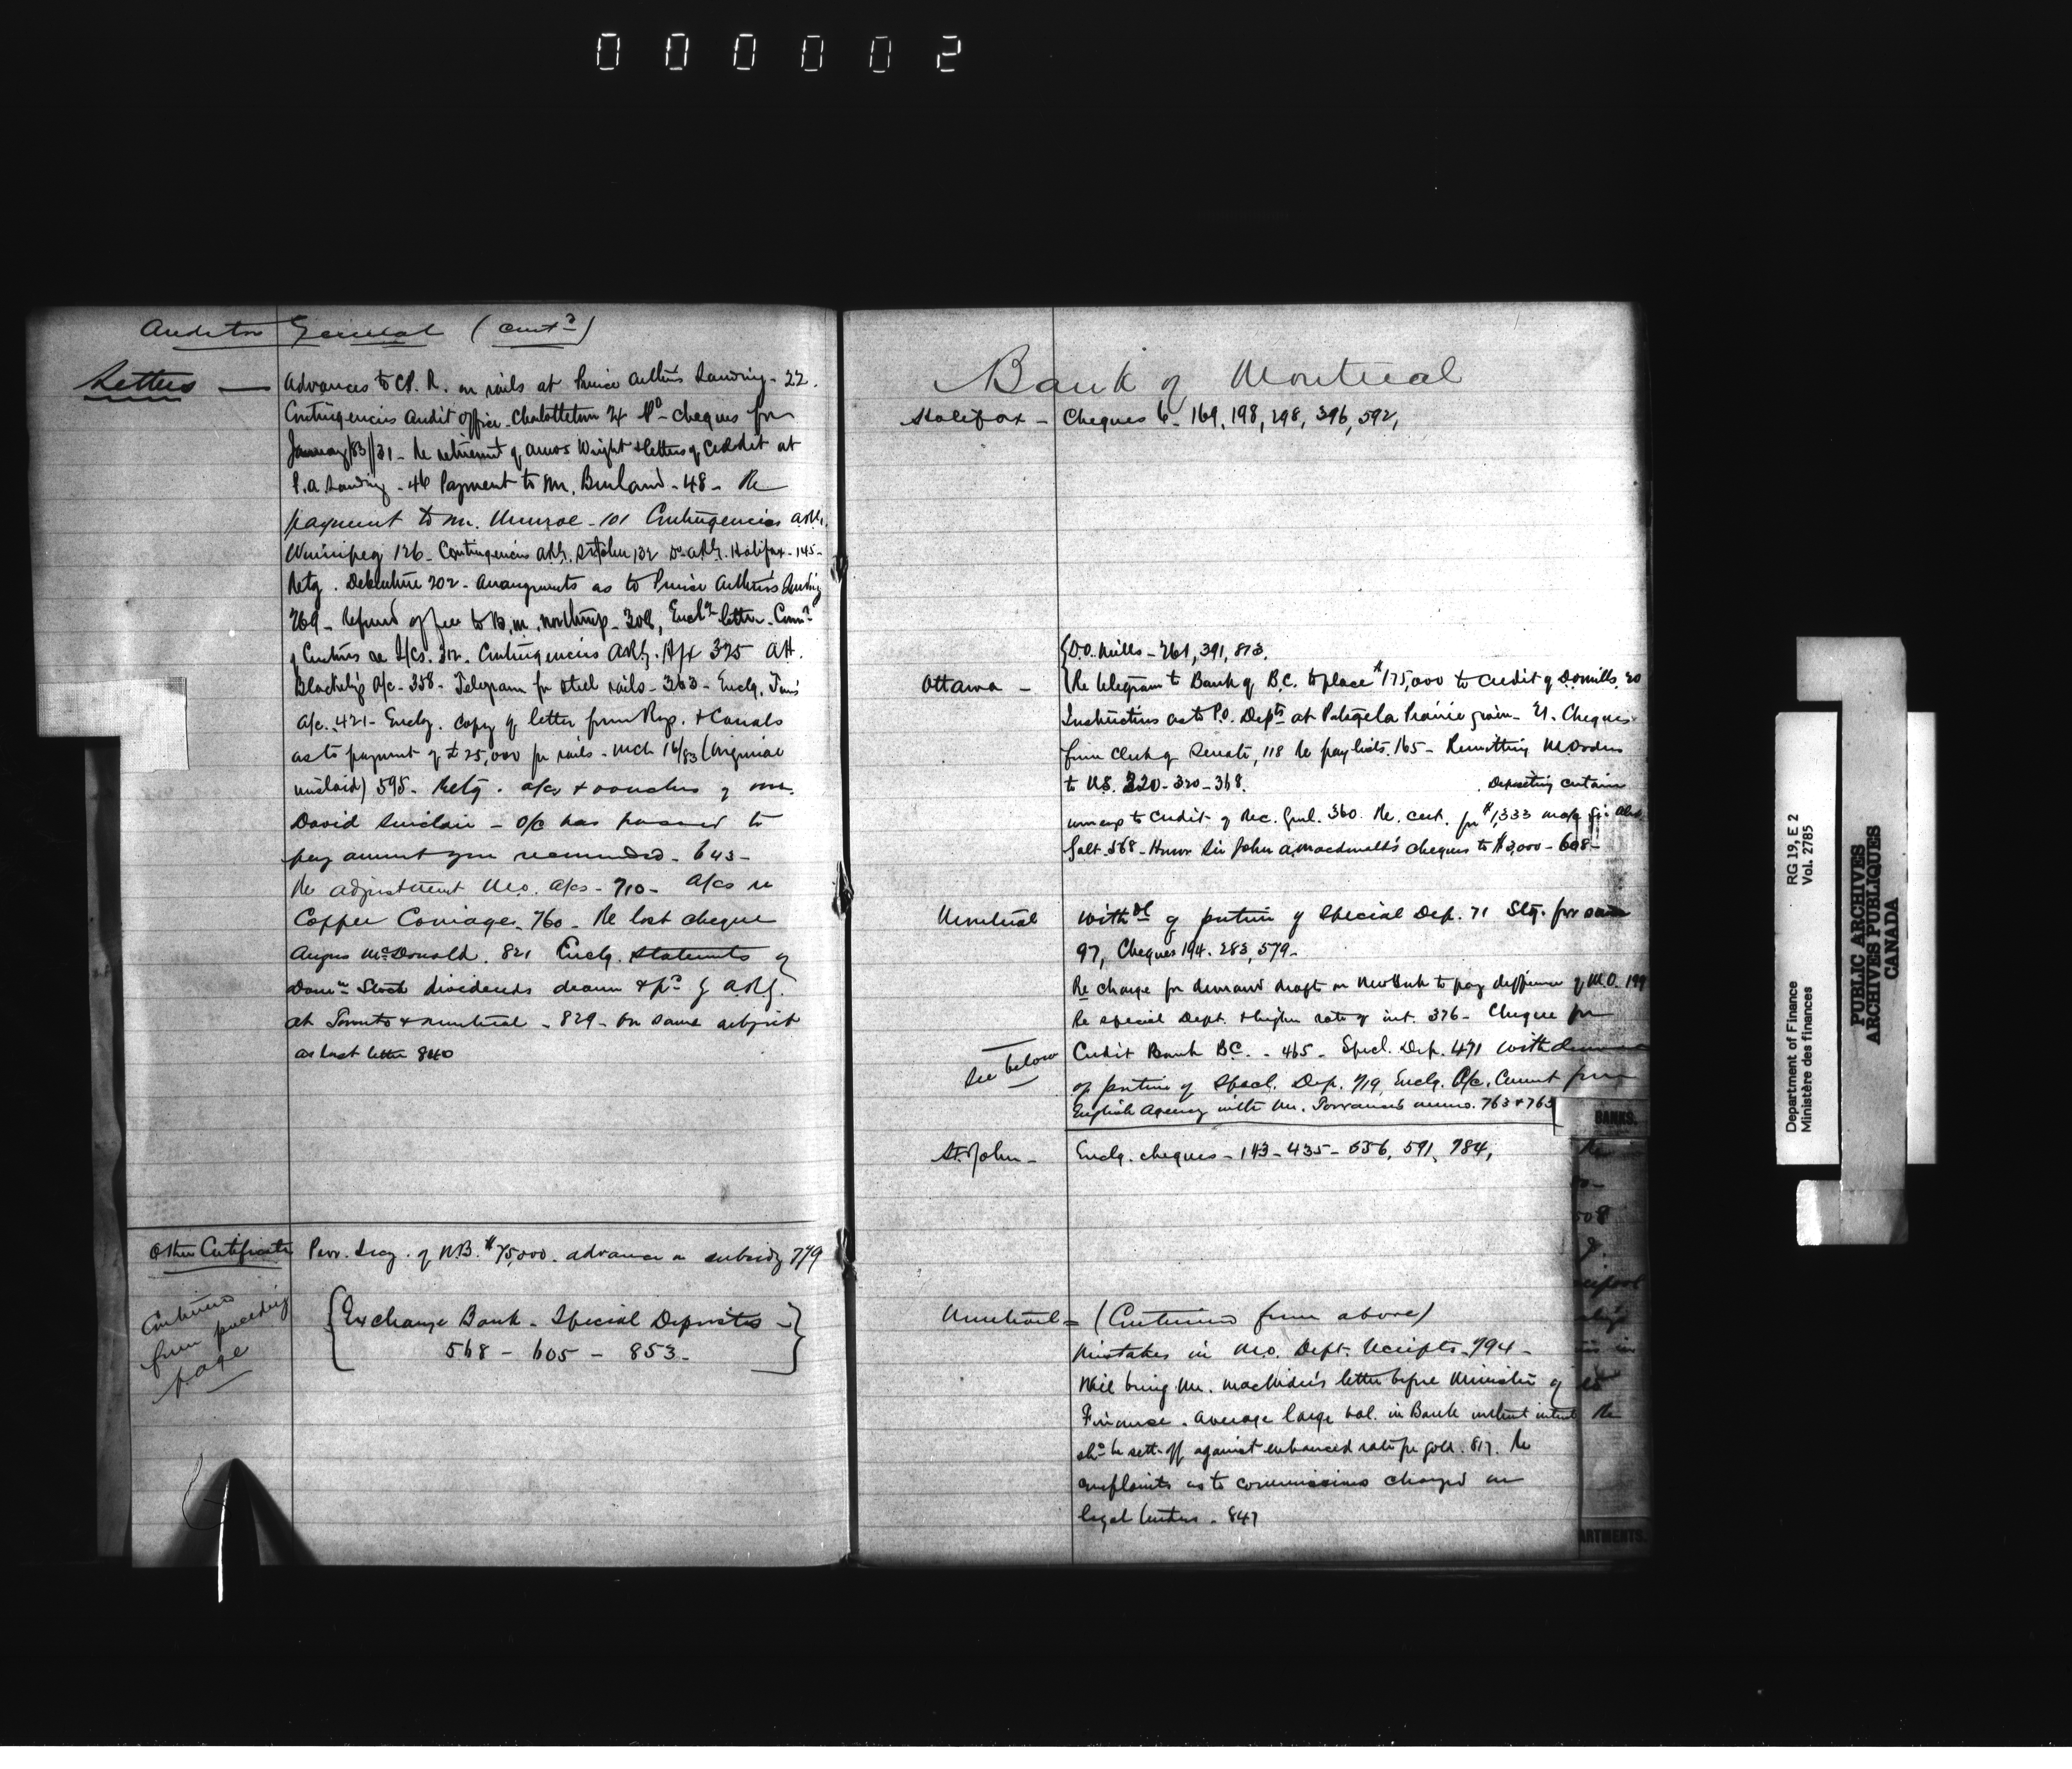 000002
Auditor General (cont d)
Letters — Advances to C.P.R. on rails at Prince Arthurs Landing - 22.
Contingencies Audit Office - Charlottetown 24 - cheques for
January/83/31 - Re retirement of Amos Wright & letters of Credit at
P.A. Landing - 46 Payment to Mr. Burland - 48 - Re
payment to Mr. Munroe - 101 Contingencies A.R.G.
Winnipeg 126 - Contingencies A.R.G. St John 132 Do A.R.G. Halifax - 145 -
Retg. Debenture 202 - Arrangements as to Prince Arthur's Landing
269 - Refund of fee to B.M. Northrup - 308, Enclg letter - Comr
of Customs re 312. Contingencies A.R.G. Hfx 325 A.H.
Blackeby a/c - 358 - Telegram for steel rails - 363 - Enclg.
a/c. 421 - Enclg. Copy of letter from Rys. & Canals
as to payment of £25,000 for rails - Mch 16/83 (Original
mislaid) 595 - Retg. a/cs & vouchers of Mr.
David Sinclair - O/C has passed to
pay amount you recommended - 643 -
Re adjustment M.O. a/cs - 710 - A/cs re
Copper Coinage. 760 - Re lost cheque
Angus McDonald. 821 Enclg. statements of
Domn Stock dividends drawn & pd by A.R.G.
at Toronto & Montreal - 829 - On same subject
as last letter 840
Other Certificates Prov. Secy. of N.B. $75,000. advance on subsidy 779
Continued
from preceding
page
{Exchange Bank - Special Deposits -}
568 - 605 - 853 -
Bank of Montreal
Halifax - Cheques 6 - 169, 198, 298, 396, 592,
{D.O. Mills - 261, 391, 813.
Ottawa - Re telegram to Bank of B.C. to place $175,000 to Credit of D.O. Mills, 20
Instructions as to P.O. Depts at Portage la Prairie - Cheques
from Clerk of Senate, 118 Re pay lists. 165 - Remitting M. Orders
to U.S. 220 - 320 - 368. Depositing certain
to Credit of Rec. Genl. 360. Re. cert. for $1,333
Galt. 568 - Honor Sir John A. Macdonald's cheques to $3,000 - 608 -
Montreal Withdl of portion of Special Dep. 71 Stg. for same
97, Cheques 194. 283, 579 -
Re charge for demand draft on New York to pay difference of M.O. 199
Re special Dept. & higher rate of int. 376 - Cheque for
See below Credit Bank B.C. - 465 - Specl. Dep. 471 Withdrawal
of portion of Specl. Dep. 719 Enclg. A/c. Current from
English Agency with Mr. Torrance's memo. 763 & 765
BANKS.
St. John - Enclg. cheques - 143 - 435 - 556, 591, 784,
Montreal = (Continued from above)
Mistakes in M.O. Dept. receipts - 794 -
Will bring Mr. letter before Minister of
Finance. Average large bal. in Bank without interest
shd be sett-off against enhanced rate for gold. 817. Re
complaints as to commissions charged on
legal tenders - 847
ARTMENTS.
Department of Finance RG 19, E 2
Ministère des finances Vol. 2785
PUBLIC ARCHIVES
ARCHIVES PUBLIQUES
CANADA